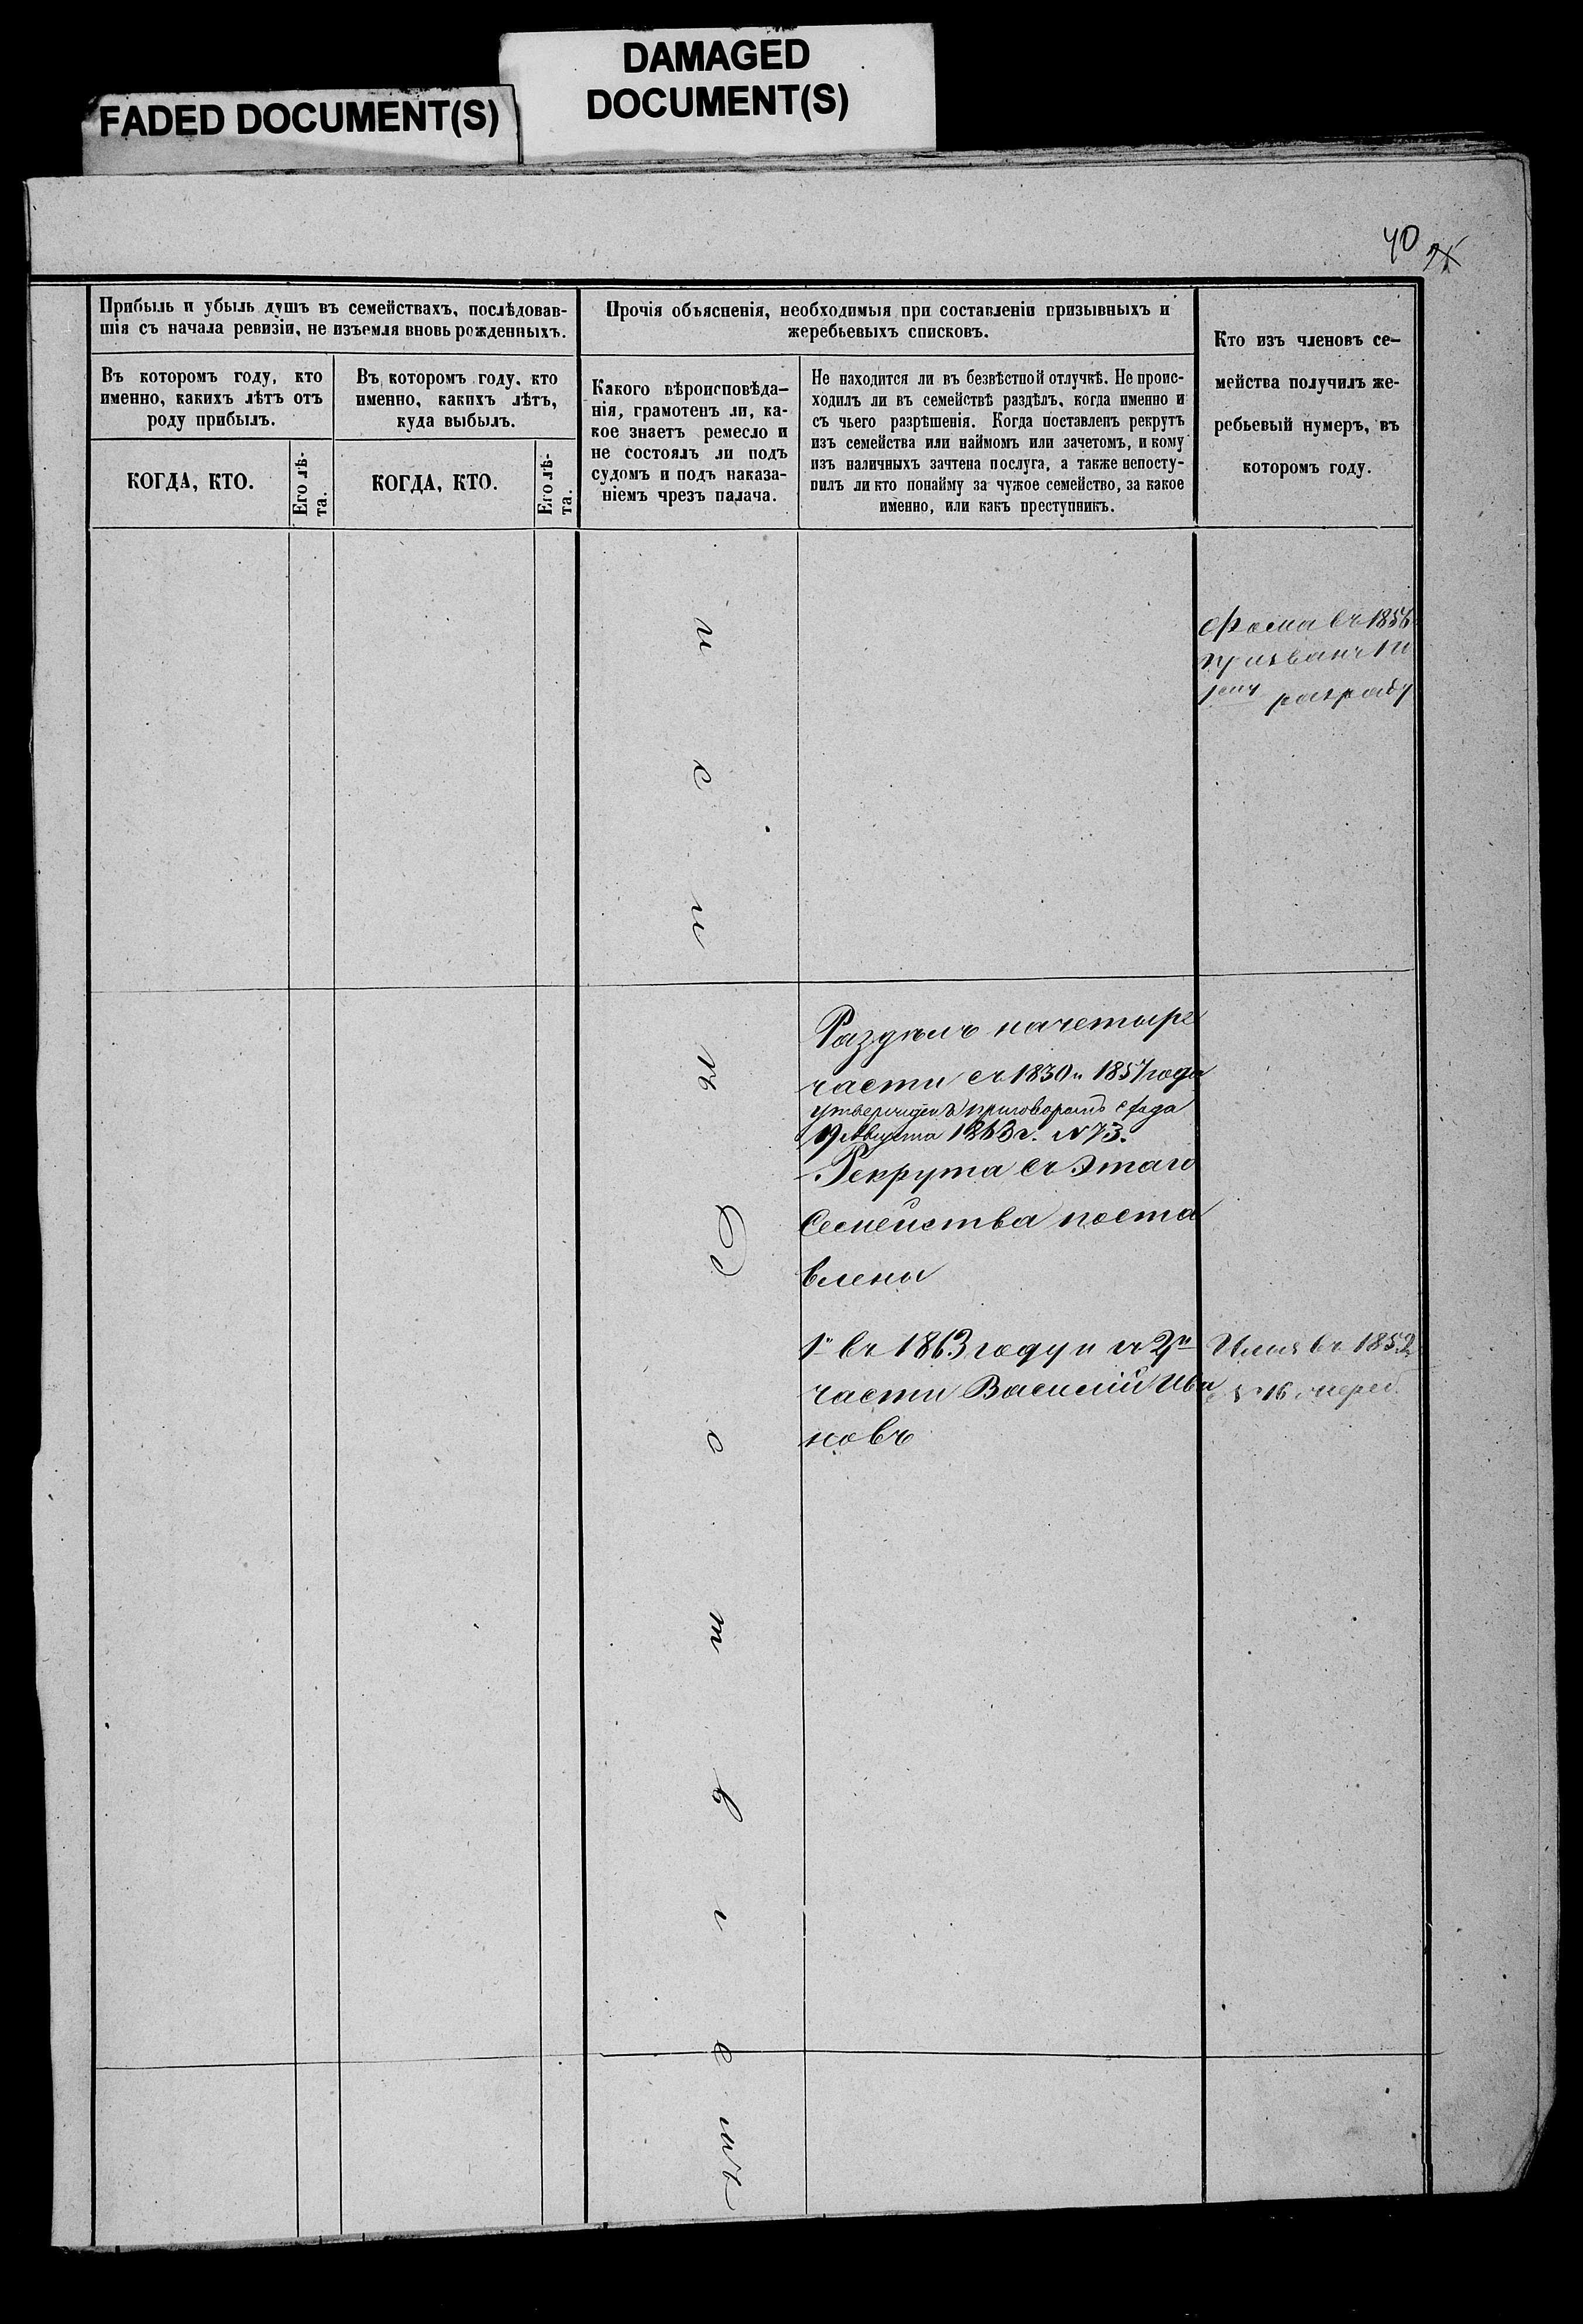 DAMAGED
DOCUMENT(S)
FADED DOCUMENT(S)
40
Прибыль и убыль душъ въ семействахъ, послѣдовав-
шія съ начала ревизіи, не изъемля вновь рожденныхъ.
Въ которомъ году, кто
именно, какихъ лѣтъ отъ
роду прибылъ.
КОГДА, КТО.
Его лѣ-
та.
Въ которомъ году, кто
именно, какихъ лѣтъ,
куда выбылъ.
КОГДА, КТО.
Его лѣ-
та.
Прочія объясненія, необходимыя при составленіи призывныхъ и
жеребьевыхъ списковъ.
Какого вѣроисповѣда-
нія, грамотенъ ли, ка-
кое знаетъ ремесло и
не состоялъ ли подъ
судомъ и подъ наказа-
ніемъ чрезъ палача.
Не находится ли въ безвѣстной отлучкѣ. Не проис-
ходилъ ли въ семействѣ раздѣлъ, когда именно и
съ чьего разрѣшенія. Когда поставленъ рекрутъ
изъ семейства или наймомъ или зачетомъ, и кому
изъ наличныхъ зачтена послуга, а также непосту-
пилъ ли кто понайму за чужое семейство, за какое
именно, или какъ преступникъ.
Кто изъ членовъ се-
мейства получилъ же-
ребьевый нумеръ, въ
которомъ году.
Фома въ 1856
призванъ по
разряду
Раздѣлъ на четыре
части съ 1830 и 1857 года
утвержденъ приговоромъ схода
19 Августа 1863 г. № 73.
Рекрута съ этаго
Семейства поста
влены
1й въ 1863 году и съ 2й
части Василій Ива
новъ
Илья въ 1852
№ 16